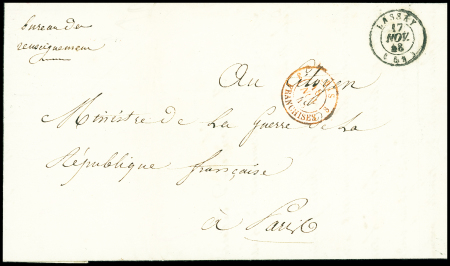 bureau des
renseignemens
LASSAY
17
NOV.
48
(51)
Au Citoyen
FRANCHISE
Ministre de La Guerre de La
République française
à Paris